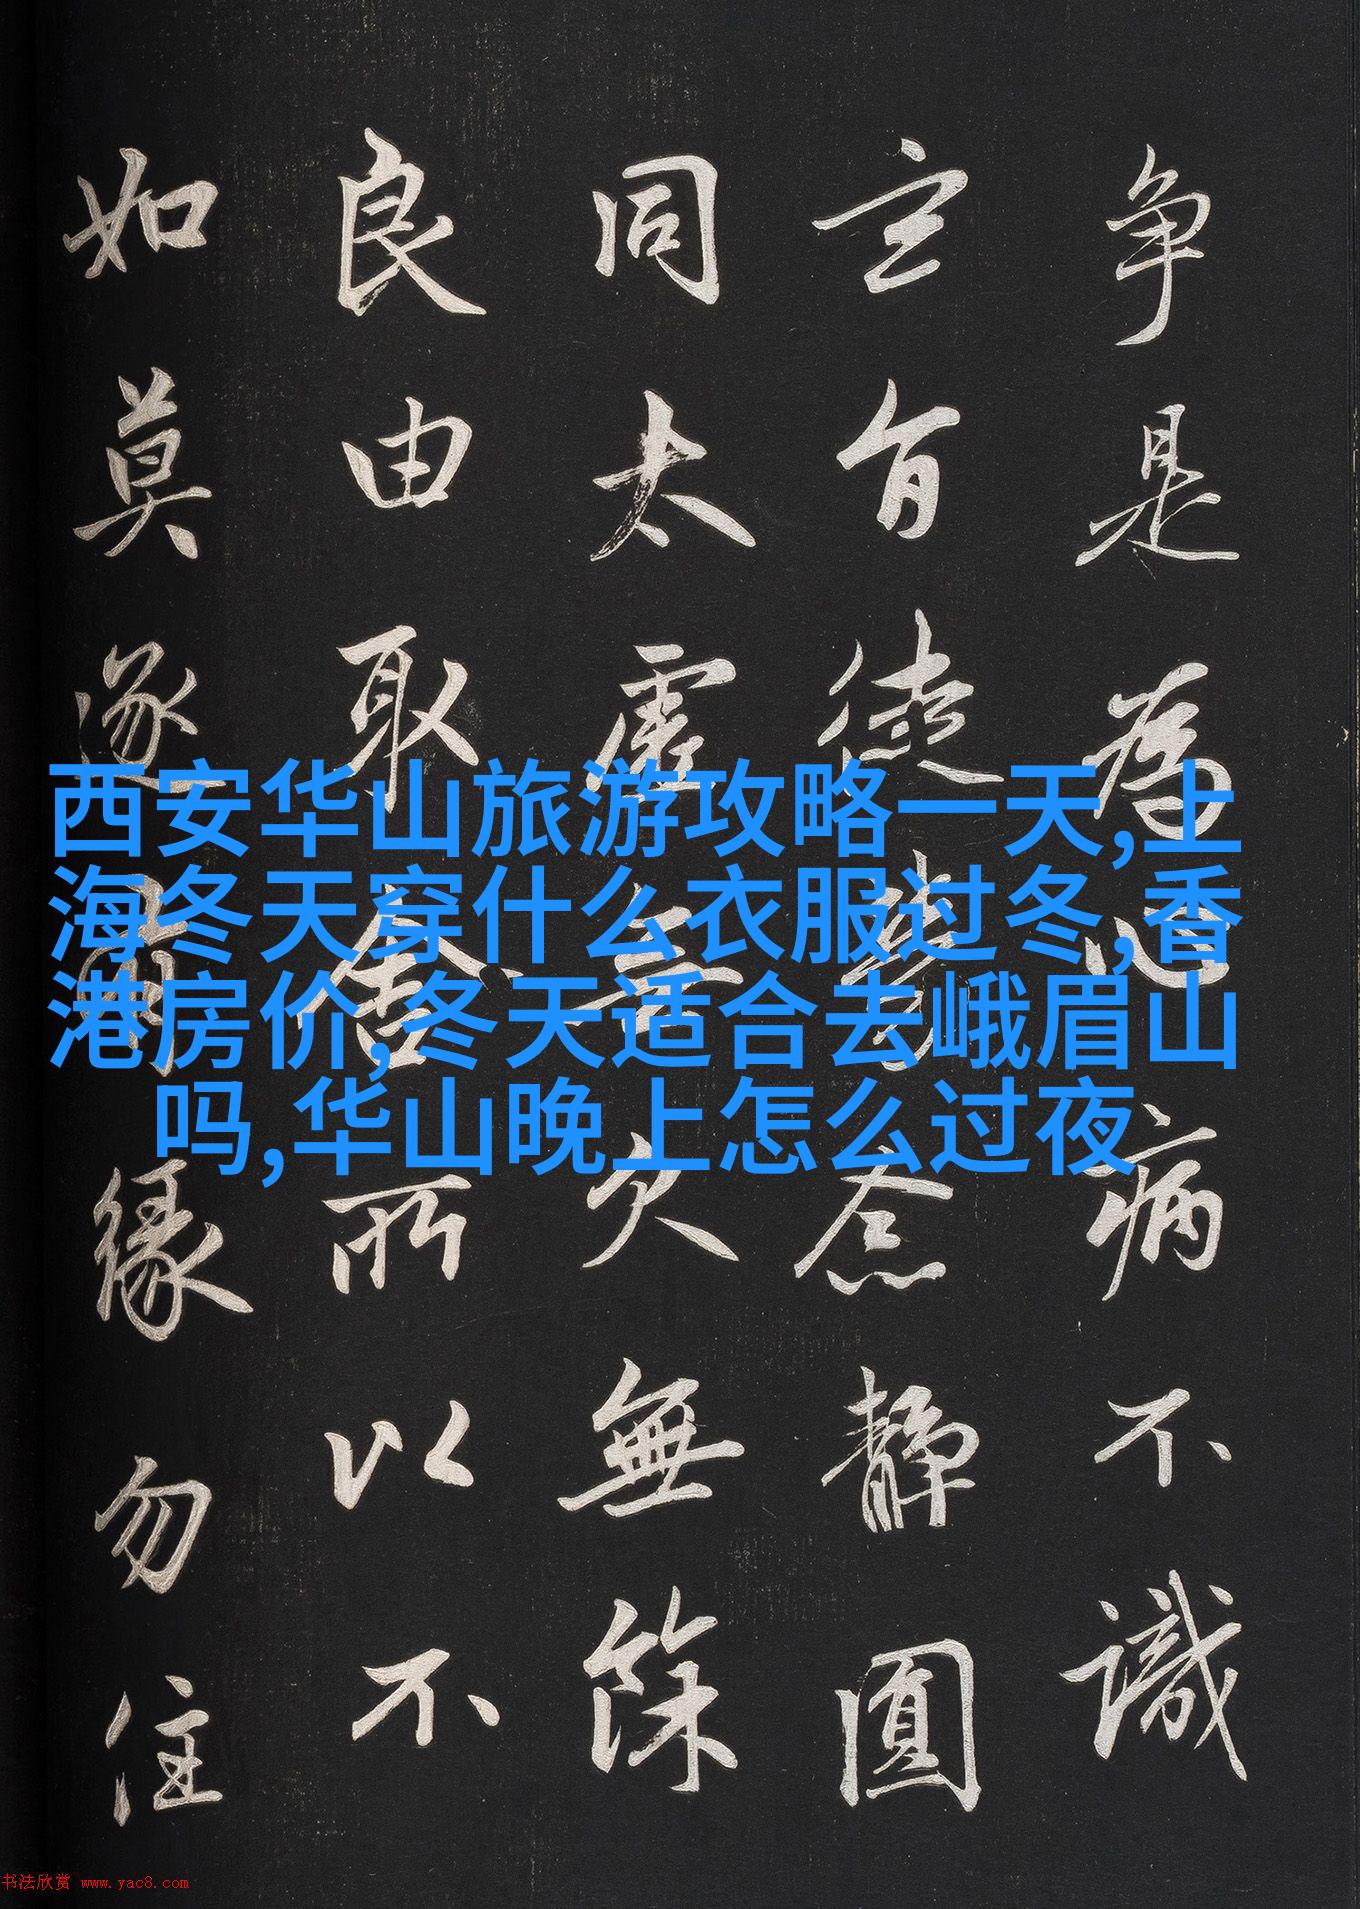 争是為心病不識
玄旨徒勞念靜圓
同太虛無欠無餘
良由取舍所以不
如莫逐有緣勿住
西安华山旅游攻略一天,上
海冬天穿什么衣服过冬,香
港房价,冬天适合去峨眉山
吗,华山晚上怎么过夜
书法欣赏 www.yac8.com